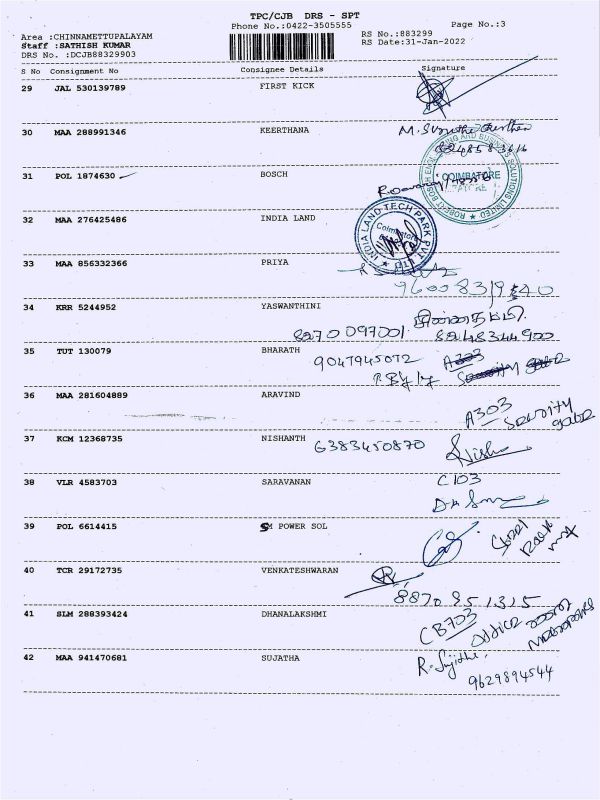 TPC/CJB DRS - SPT
Phone No.:0422-3505555
Page No.:3
Area :CHINNAMETTUPALAYAM
RS No.:883299
Staff :SATHISH KUMAR
RS Date:31-Jan-2022
DRS No. :DCJB88329903
S No Consignment No Consignee Details Signature
29 JAL 530139789 FIRST KICK
30 MAA 288991346 KEERTHANA
31 POL 1874630 BOSCH
COIMBATORE
32 MAA 276425486 INDIA LAND
INDIA LAND TECH PARK PVT
Coimbatore
33 MAA 856332366 PRIYA
34 KRR 5244952 YASWANTHINI
8270097001 8248344900
35 TUT 130079 BHARATH
9047945072 A303
36 MAA 281604889 ARAVIND
A303
Security
gate
37 KCM 12368735 NISHANTH 6383450870
38 VLR 4583703 SARAVANAN C103
39 POL 6614415 SM POWER SOL
40 TCR 29172735 VENKATESHWARAN
8870951315
41 SLM 288393424 DHANALAKSHMI
CB703 office room
42 MAA 941470681 SUJATHA
9629894544